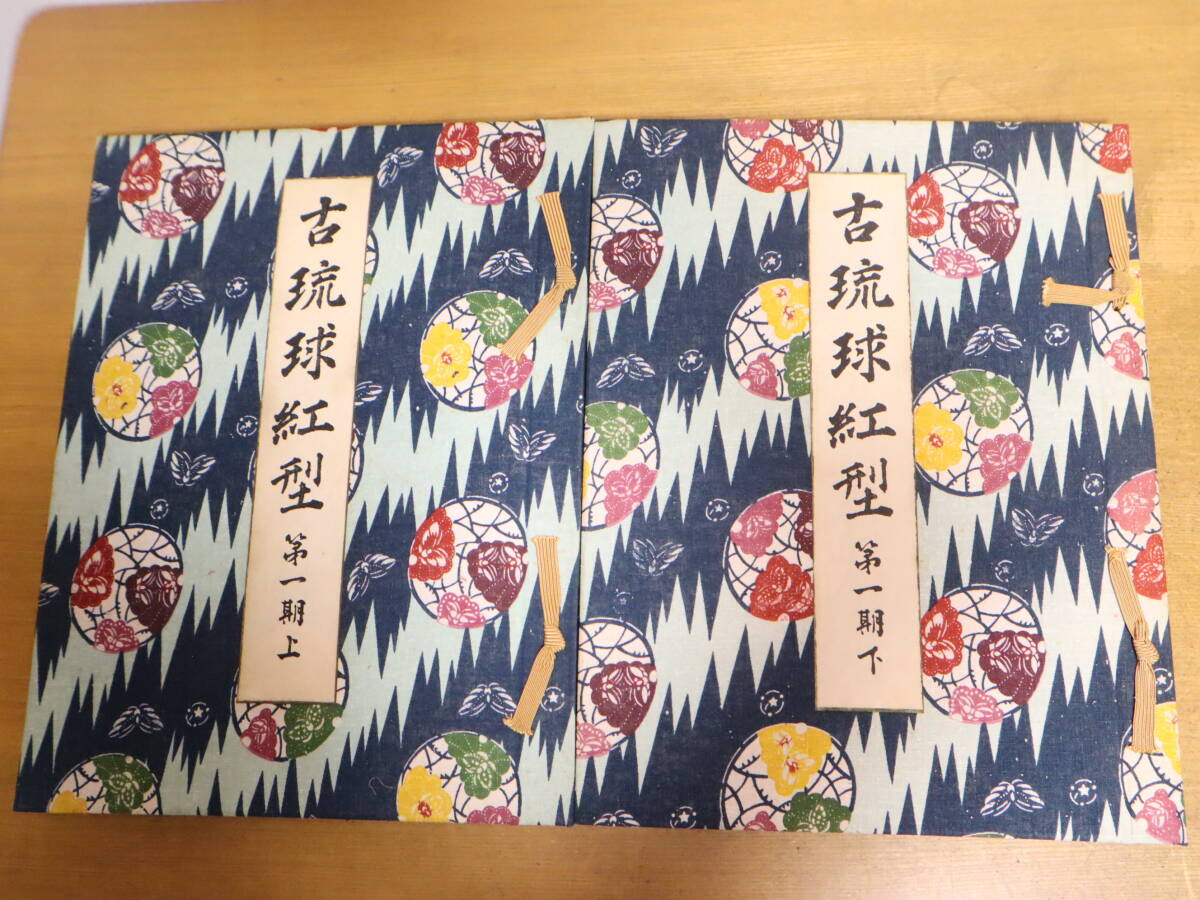 古琉球紅型 第一期上
古琉球紅型 第一期下